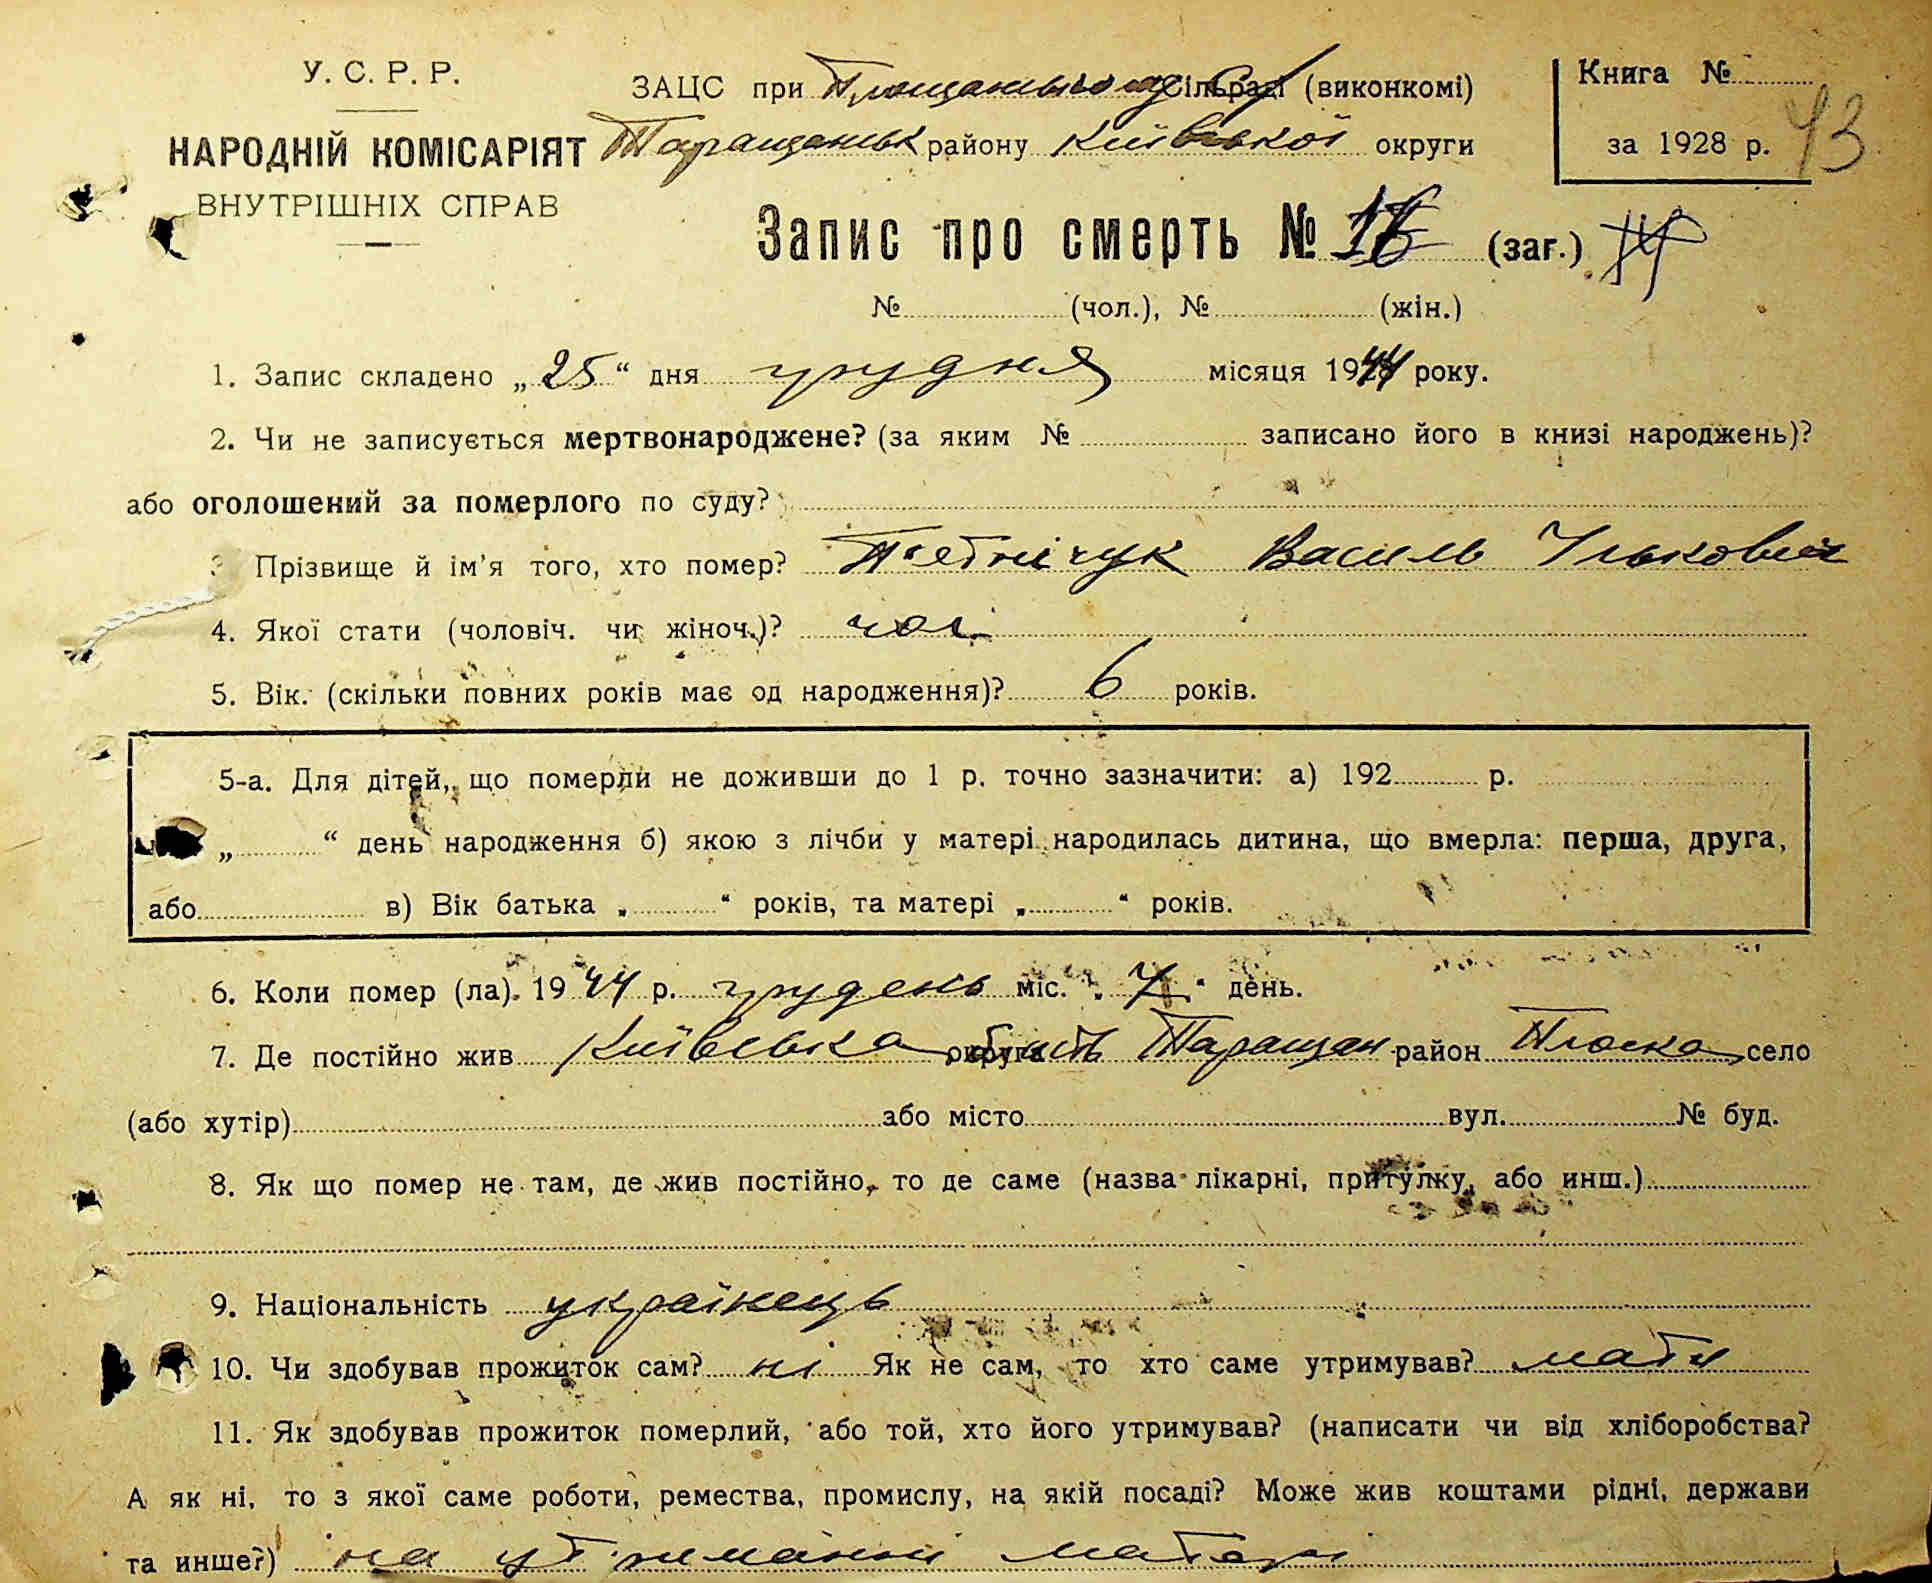 У. С. Р. Р.
НАРОДНІЙ КОМІСАРІЯТ
ВНУТРІШНІХ СПРАВ
ЗАЦС при сільраді (виконкомі)
Таращанськ району Київської округи
Книга №
за 1928 р. 43
Запис про смерть № (заг.)
№ (чол.), № (жін.)
1. Запис складено „25“ дня грудня місяця 1944 року.
2. Чи не записується мертвонароджене? (за яким № записано його в книзі народжень)?
або оголошений за померлого по суду?
3 Прізвище й ім'я того, хто помер? Василь Ількович
4. Якої стати (чоловіч. чи жіноч.)? чол.
5. Вік. (скільки повних років має од народження)? 6 років.
5-а. Для дітей, що померли не доживши до 1 р. точно зазначити: а) 192 р.
„ “ день народження б) якою з лічби у матері народилась дитина, що вмерла: перша, друга,
або в) Вік батька „ “ років, та матері „ “ років.
6. Коли помер (ла). 1944 р. грудень міс. „7“ день.
7. Де постійно жив Київська область Таращан район Плоска село
(або хутір) або місто вул. № буд.
8. Як що помер не там, де жив постійно, то де саме (назва лікарні, притулку, або инш.)
9. Національність українець
10. Чи здобував прожиток сам? ні Як не сам, то хто саме утримував? мати
11. Як здобував прожиток померлий, або той, хто його утримував? (написати чи від хліборобства?
А як ні, то з якої саме роботи, ремества, промислу, на якій посаді? Може жив коштами рідні, держави
та инше?) на утриманні матері